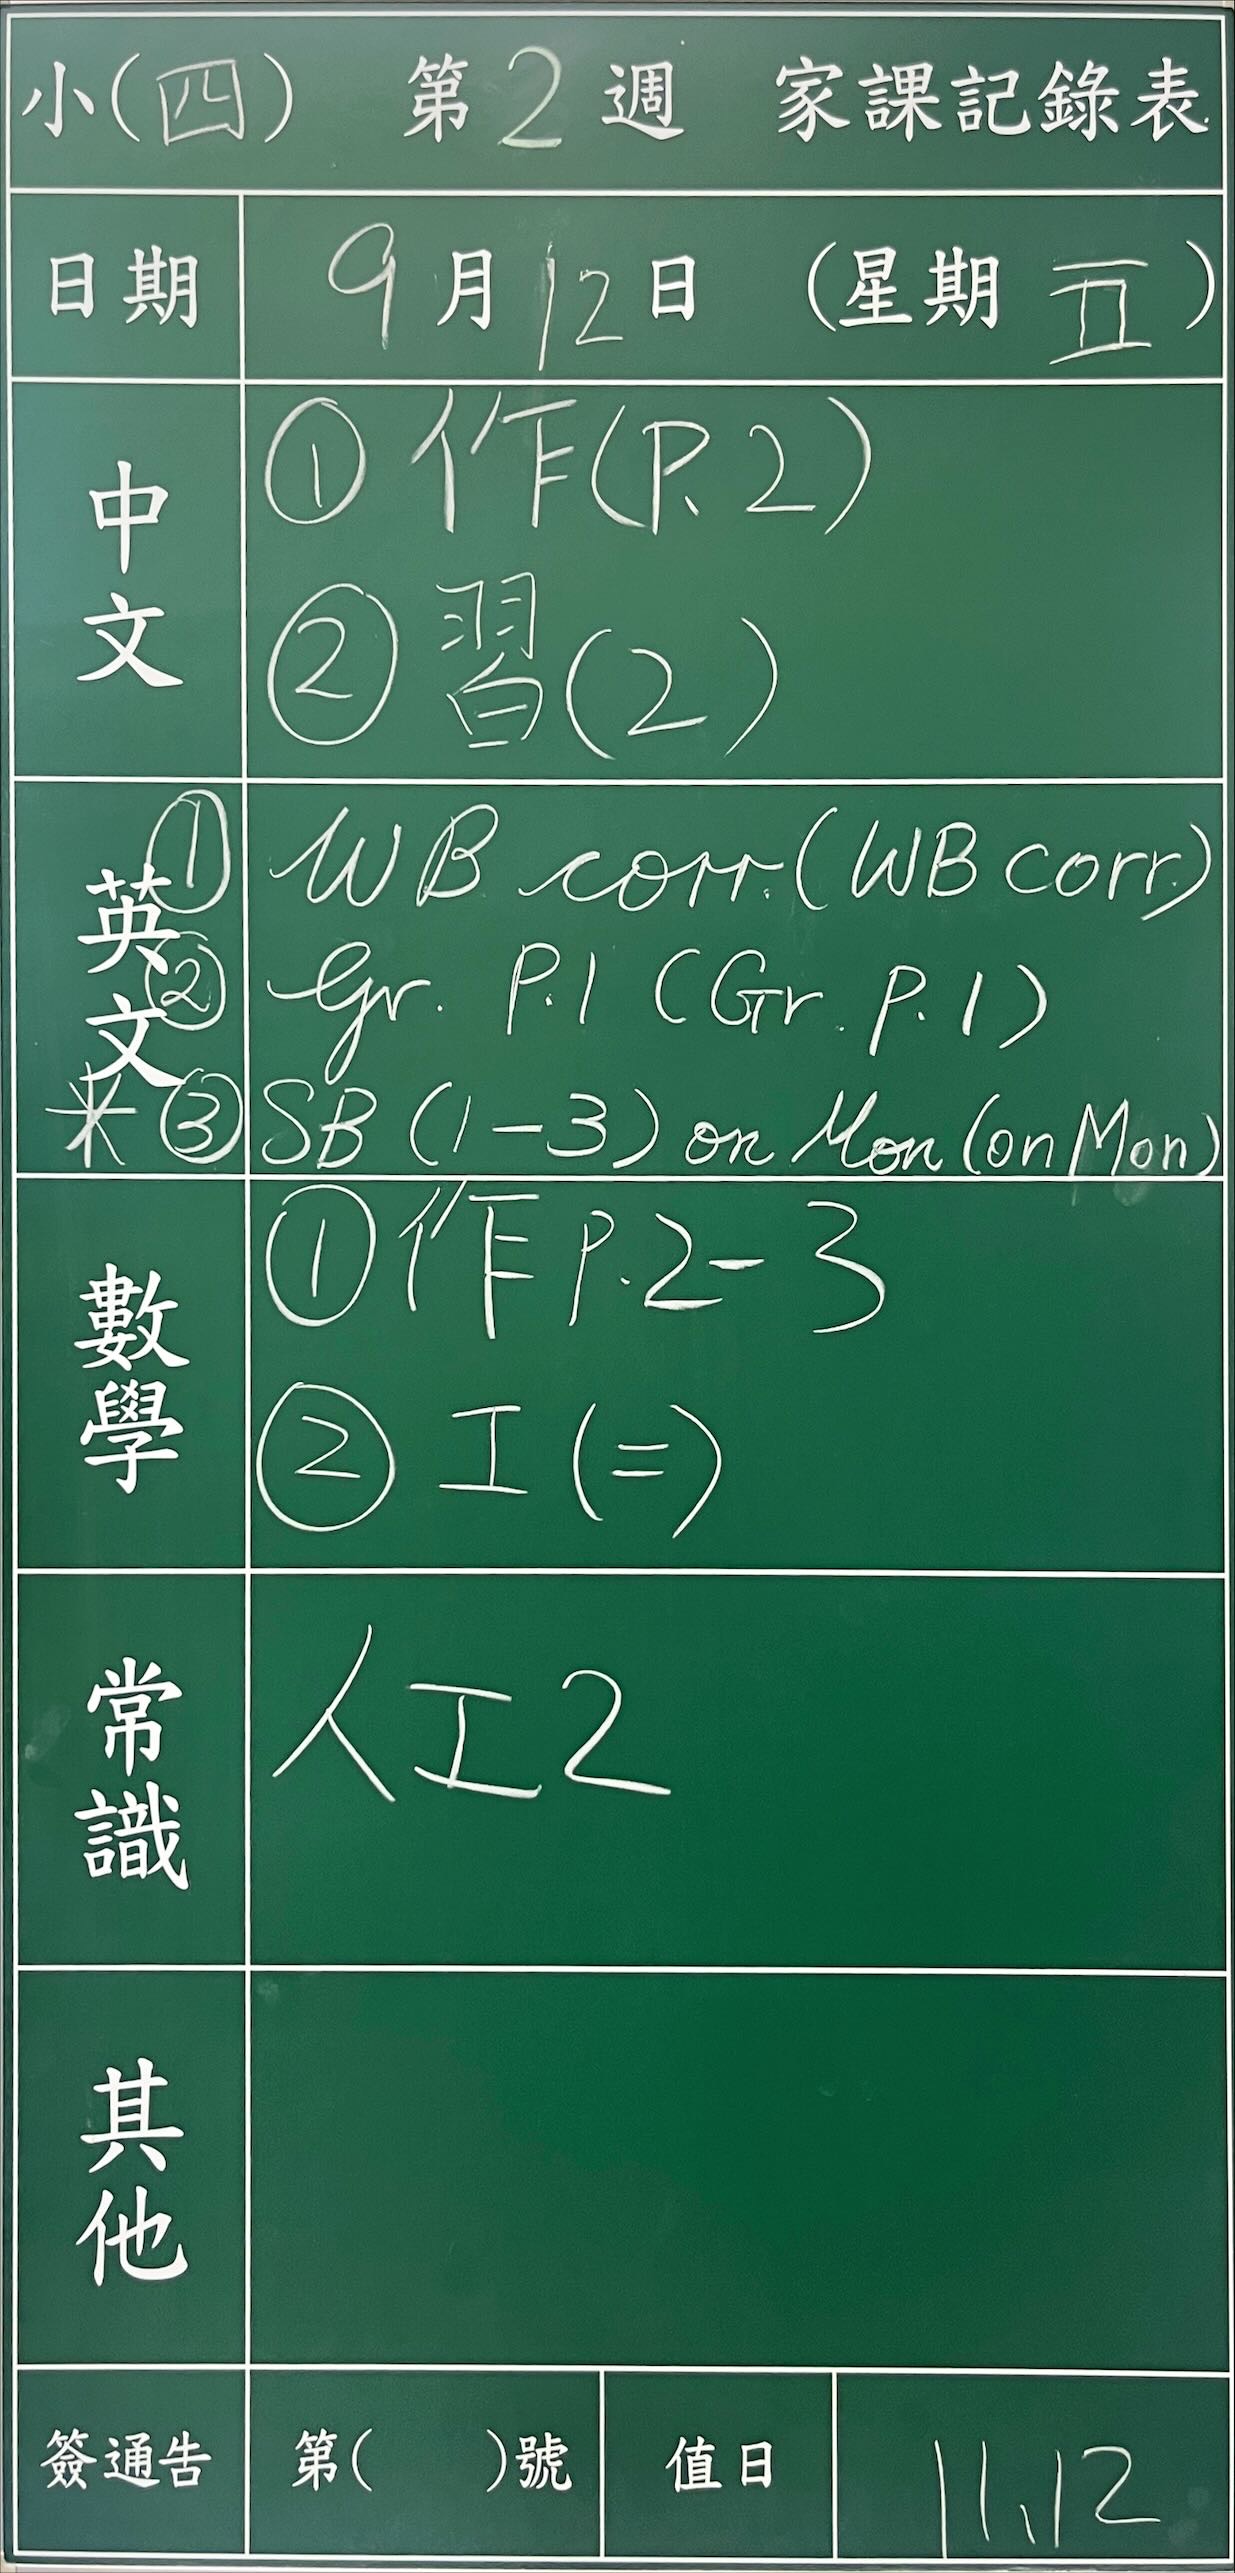 小(四) 第2週 家課記錄表
日期 9月12日 (星期五)
中文
①作(P.2)
②習(2)
英文
① WB corr.(WB corr.)
② Gr. P.1 (Gr. P.1)
*③ SB (1-3) on Mon (on Mon)
數學
①作P.2-3
②工(二)
常識
人工2
其他
簽通告 第( )號 值日 11、12